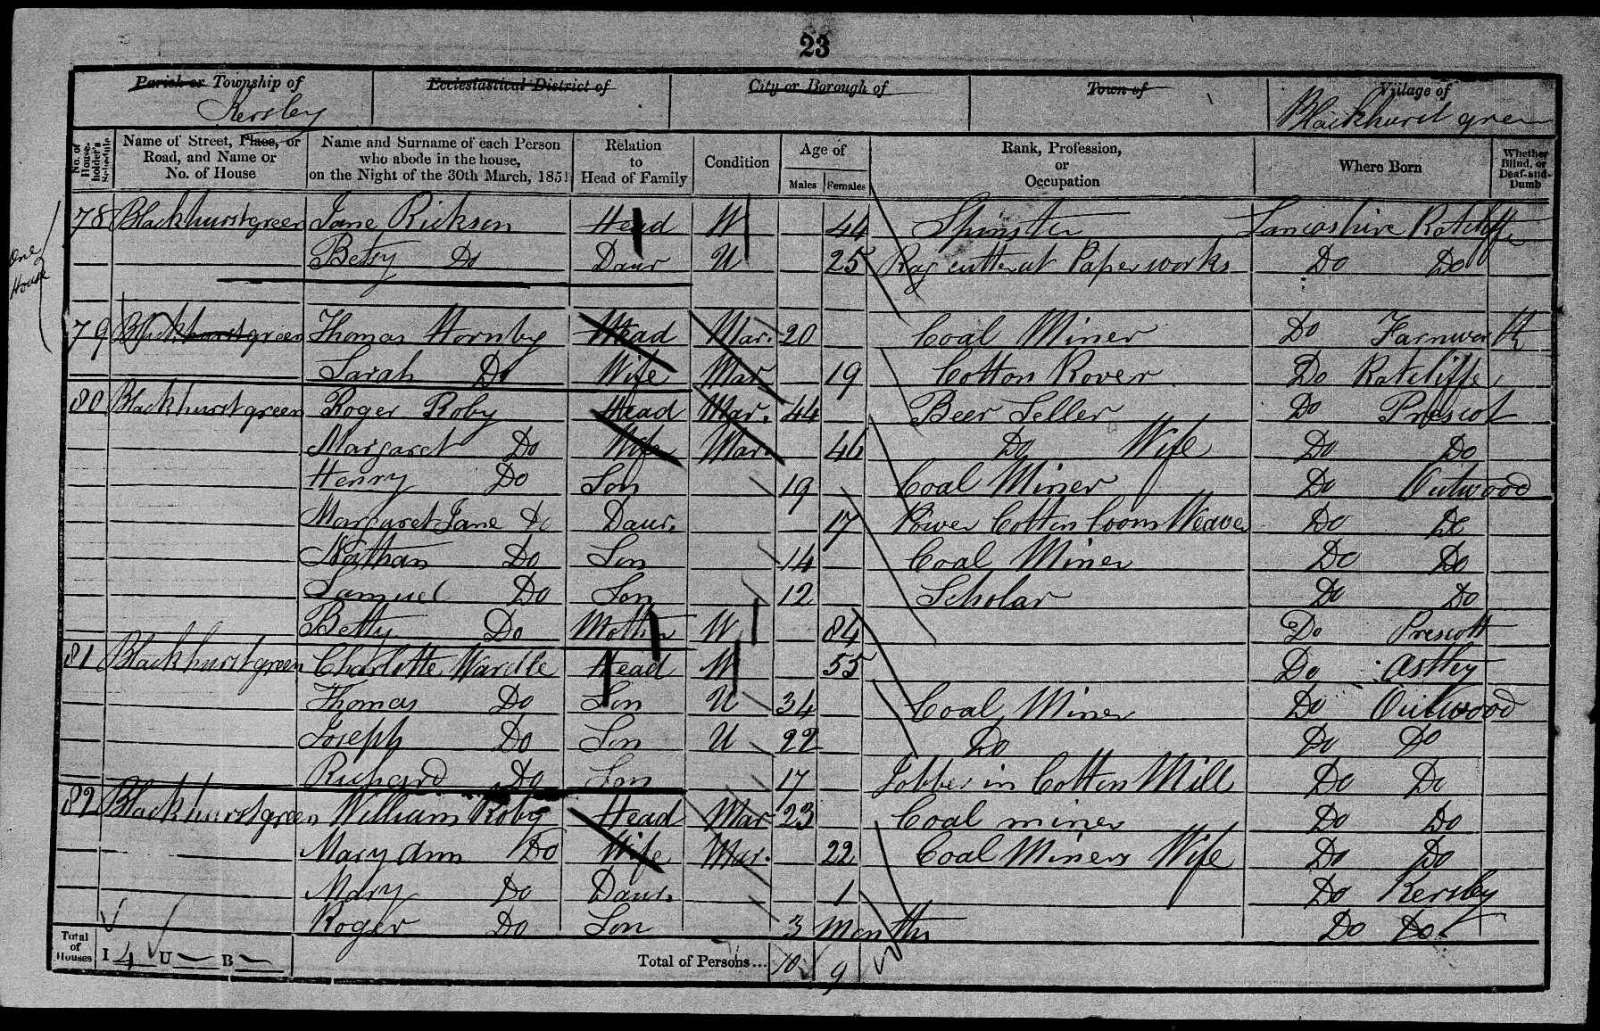 23
Parish or Township of Ecclesiastical District of City or Borough of Town of Village of
Kersley Blackhurst green
No. of House-holder's Schedule Name of Street, Place, or Road, and Name or No. of House Name and Surname of each Person who abode in the house, on the Night of the 30th March, 1851 Relation to Head of Family Condition Age of Males Females Rank, Profession, or Occupation Where Born Whether Blind, or Deaf-and-Dumb
One House
78 Blackhurstgreen Jane Rickson Head W 44 Spinster Lancashire Ratcliffe
Betsy Do Daur U 25 Rag cutter at Paper works Do Do
79 Blackhurstgreen Thomas Hornby Head Mar. 20 Coal Miner Do Farnworth
Sarah Do Wife Mar 19 Cotton Rover Do Ratcliffe
80 Blackhurstgreen Roger Roby Head Mar. 44 Beer Seller Do Prescot
Margaret Do Wife Mar. 46 Do Wife Do Do
Henry Do Son 19 Coal Miner Do Outwood
Margaret Jane Do Daur. 17 Power Cotton Loom Weaver Do Do
Nathan Do Son 14 Coal Miner Do Do
Samuel Do Son 12 Scholar Do Do
Betty Do Mother W 84 Do Prescott
81 Blackhurstgreen Charlotte Wardle Head W 55 Do Astley
Thomas Do Son U 34 Coal Miner Do Outwood
Joseph Do Son U 22 Do Do Do
Richard Do Son 17 Jobber in Cotton Mill Do Do
82 Blackhurstgreen William Roby Head Mar 23 Coal miner Do Do
Mary Ann Do Wife Mar. 22 Coal Miners Wife Do Do
Mary Do Daur. 1 Do Kersley
Roger Do Son 3 Months Do Do
Total of Houses I 4 U — B — Total of Persons... 10 9